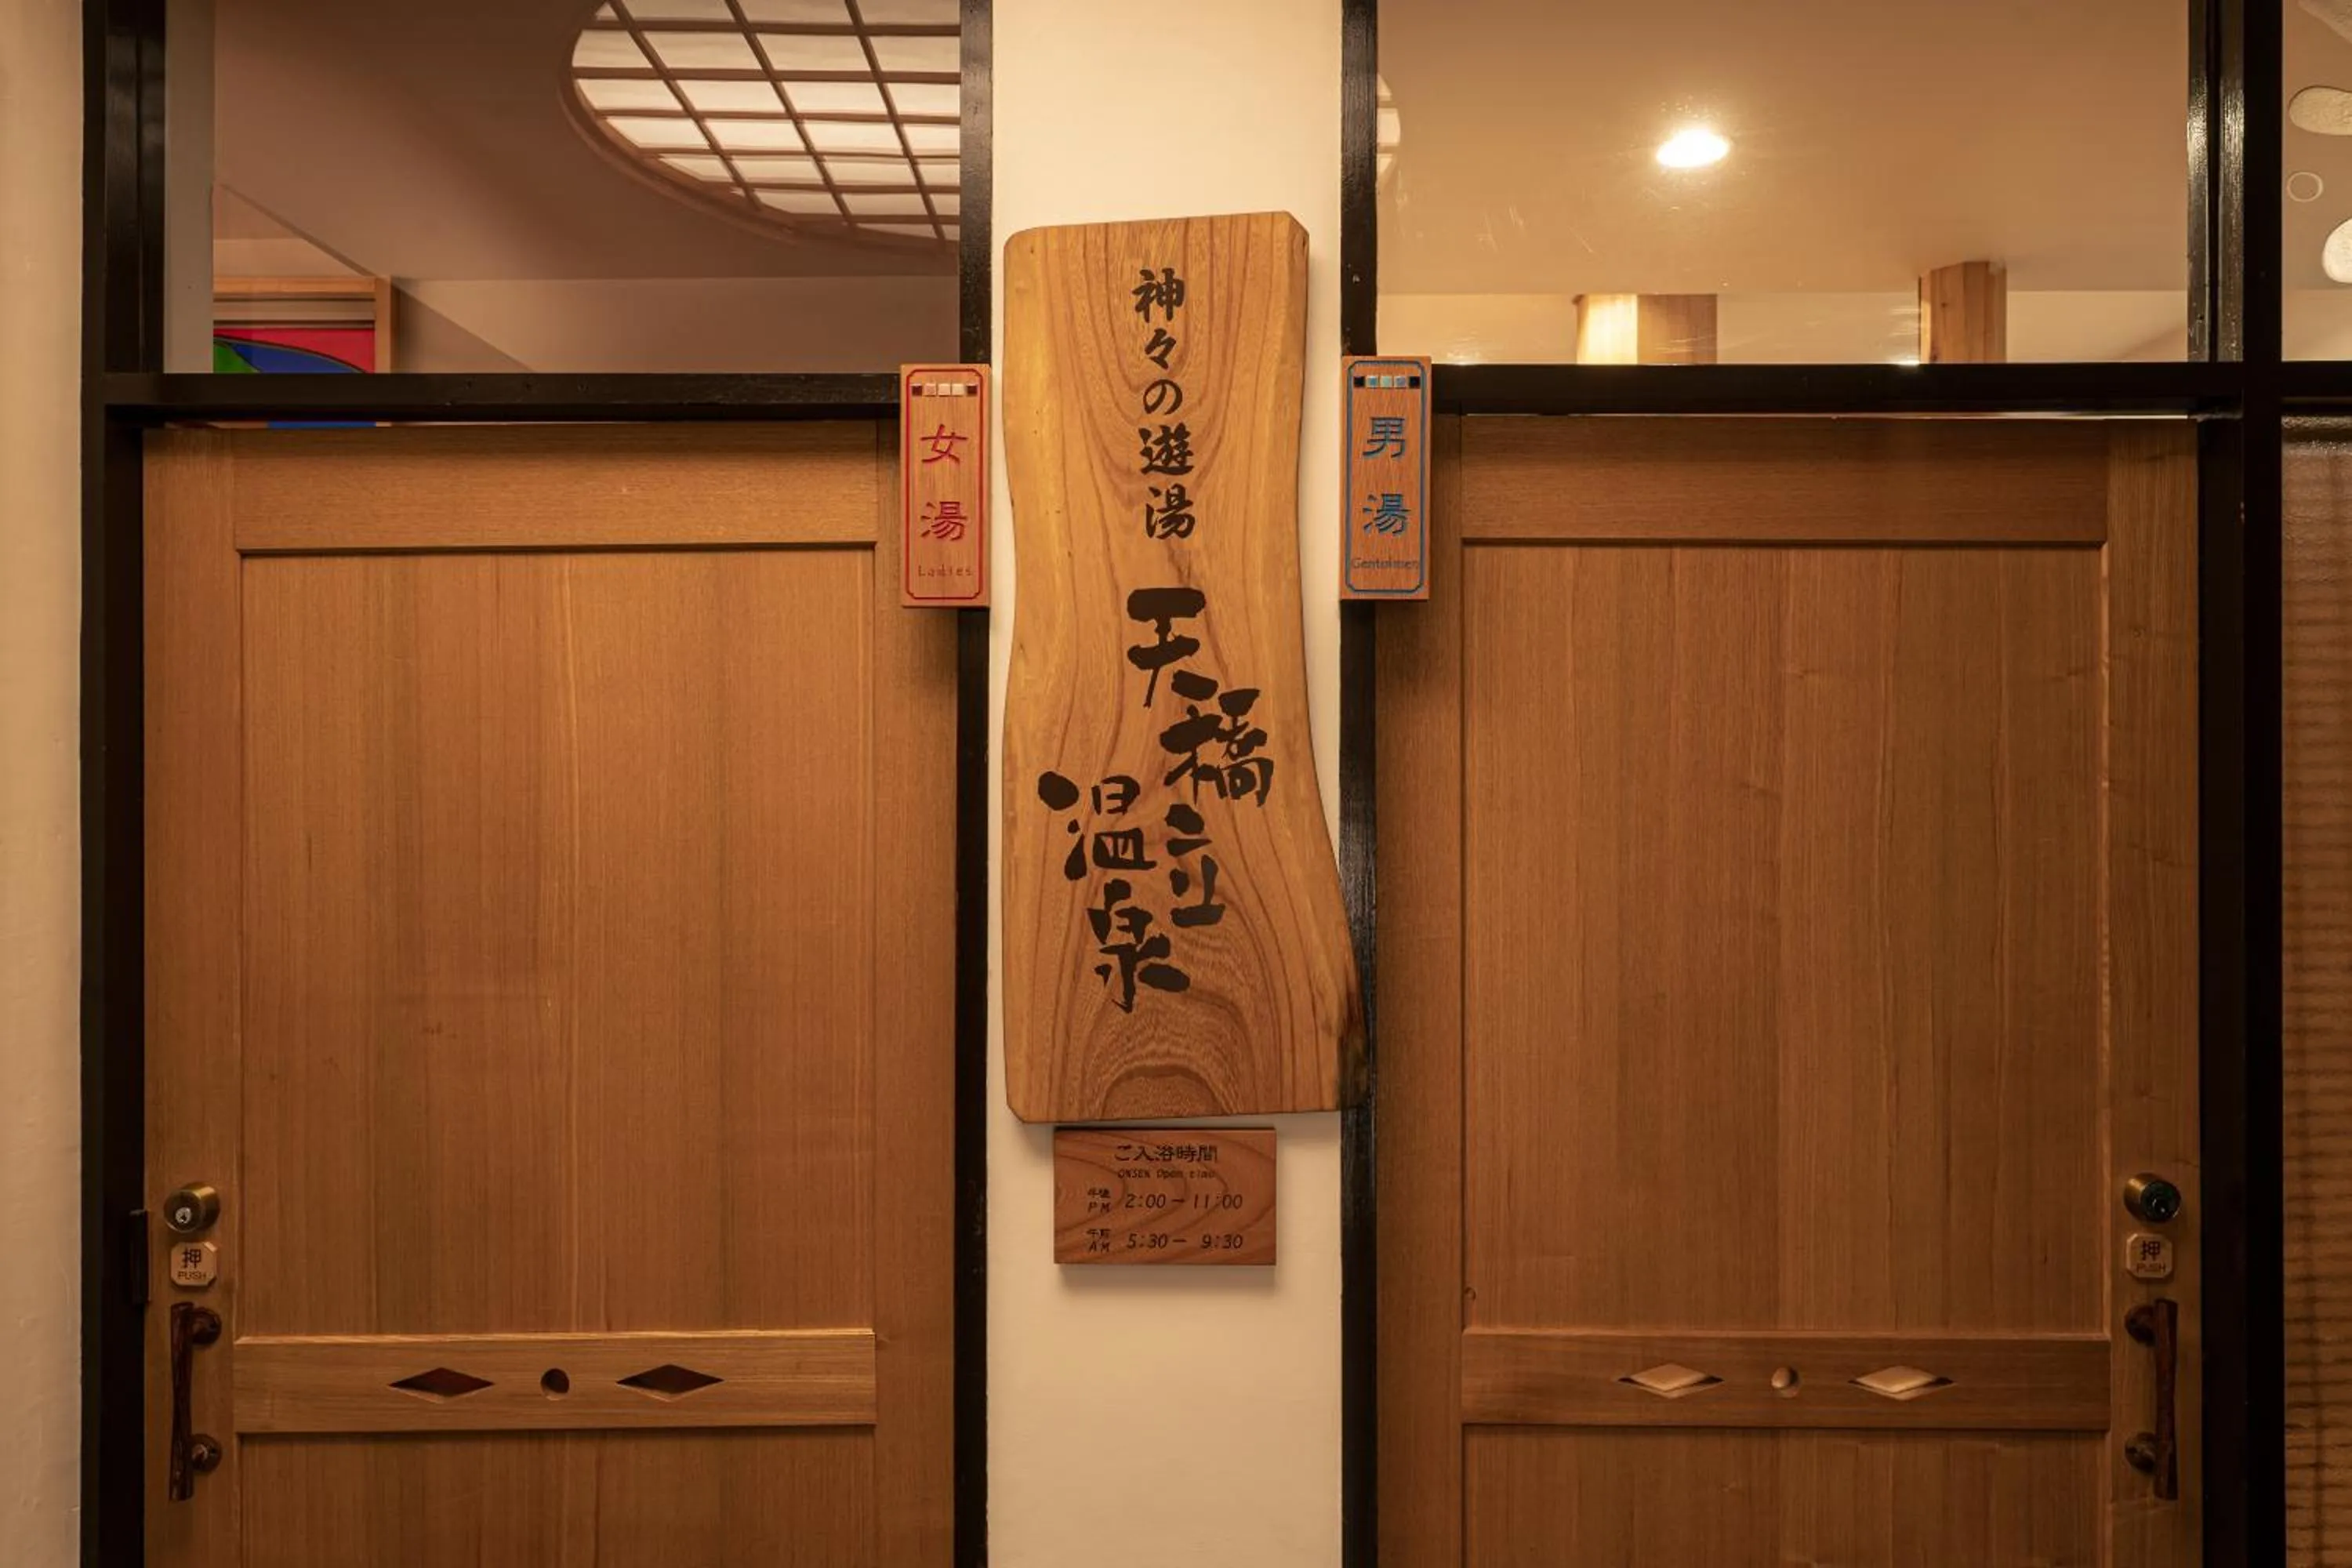 神々の遊湯
天橋立
温泉
女湯
Ladies
男湯
Gentlemen
ご入浴時間
ONSEN Open time
午後
PM 2:00－11:00
午前
AM 5:30－ 9:30
押
PUSH
押
PUSH